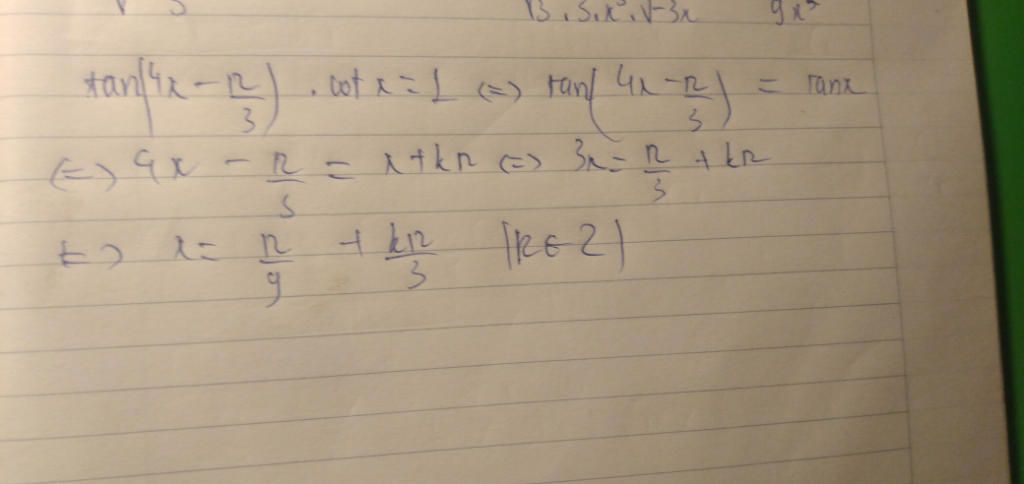 √3.3.x².√-3x 9x²
tan(4x - π/3) . cot x = 1 <=> tan(4x - π/3) = tanx
<=> 4x - π/3 = x + kπ <=> 3x = π/3 + kπ
<=> x = π/9 + kπ/3 (k ∈ Z)